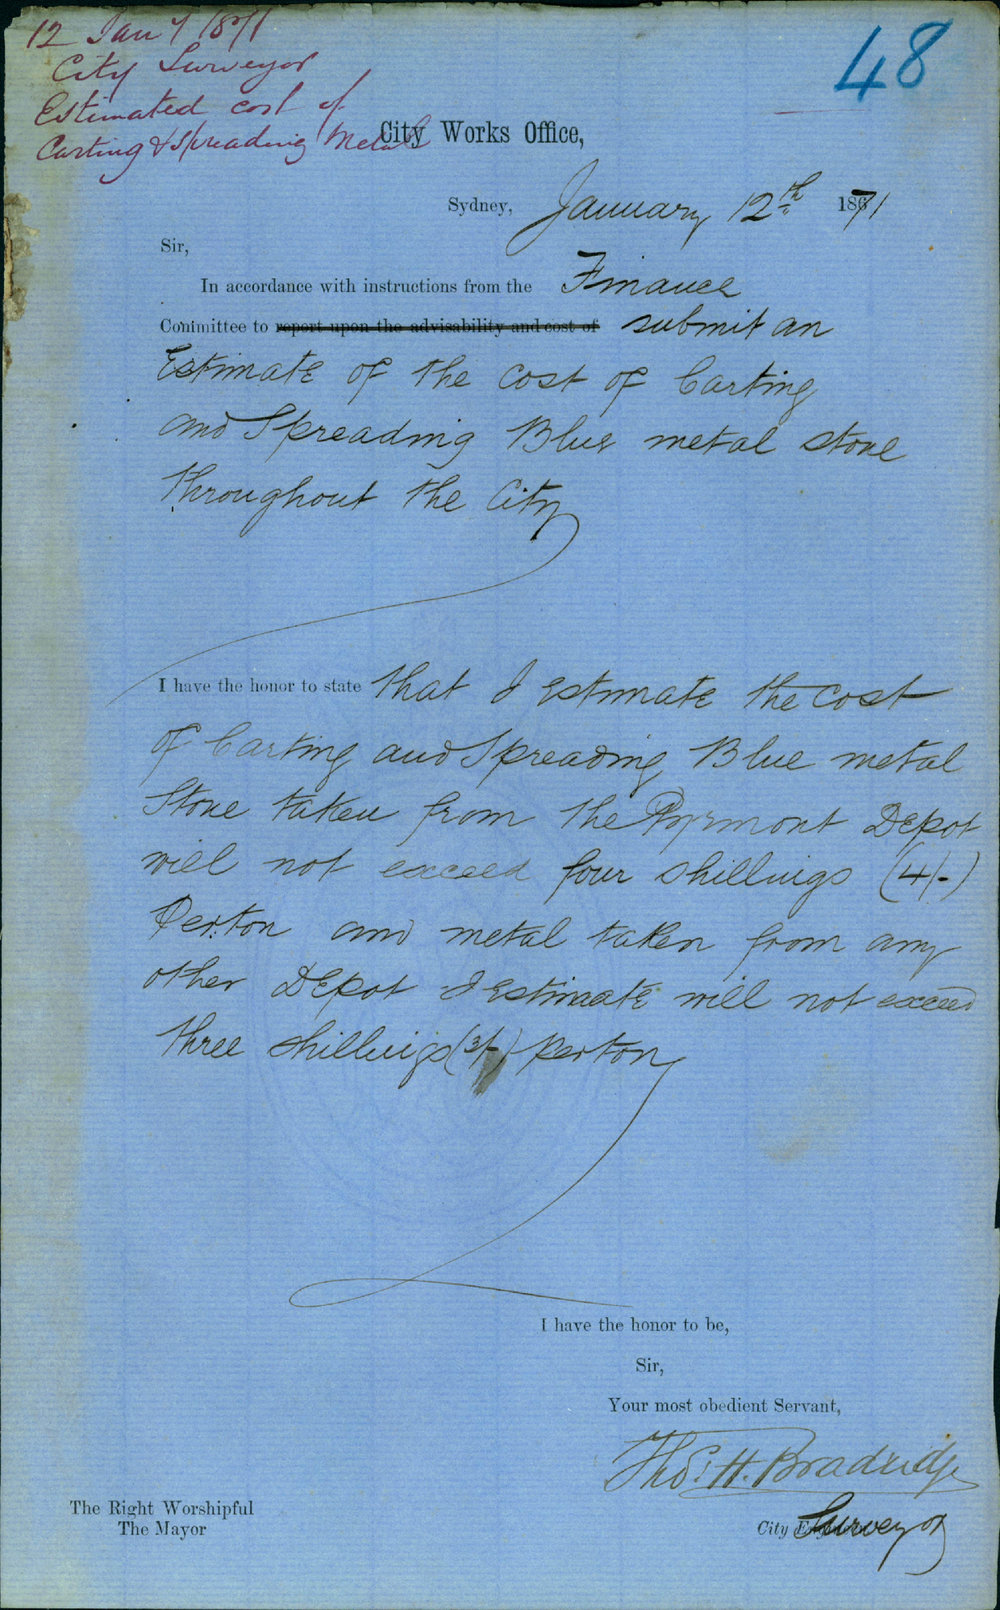 12 Jan 1871
City Surveyor
Estimated cost of
Carting & Spreading Metal
48
City Works Office,
Sydney, January 12th 1871
Sir,
In accordance with instructions from the Finance
Committee to report upon the advisability and cost of submit an
Estimate of the cost of Carting
and Spreading Blue metal stone
throughout the City
I have the honor to state that I estimate the cost
of Carting and Spreading Blue metal
Stone taken from the Pyrmont Depot
will not exceed four shillings (4/-)
Per ton and metal taken from any
other Depot I estimate will not exceed
three shillings (3/-) per ton
I have the honor to be,
Sir,
Your most obedient Servant,
Thos. H. Bradridge
The Right Worshipful
The Mayor
City Surveyor